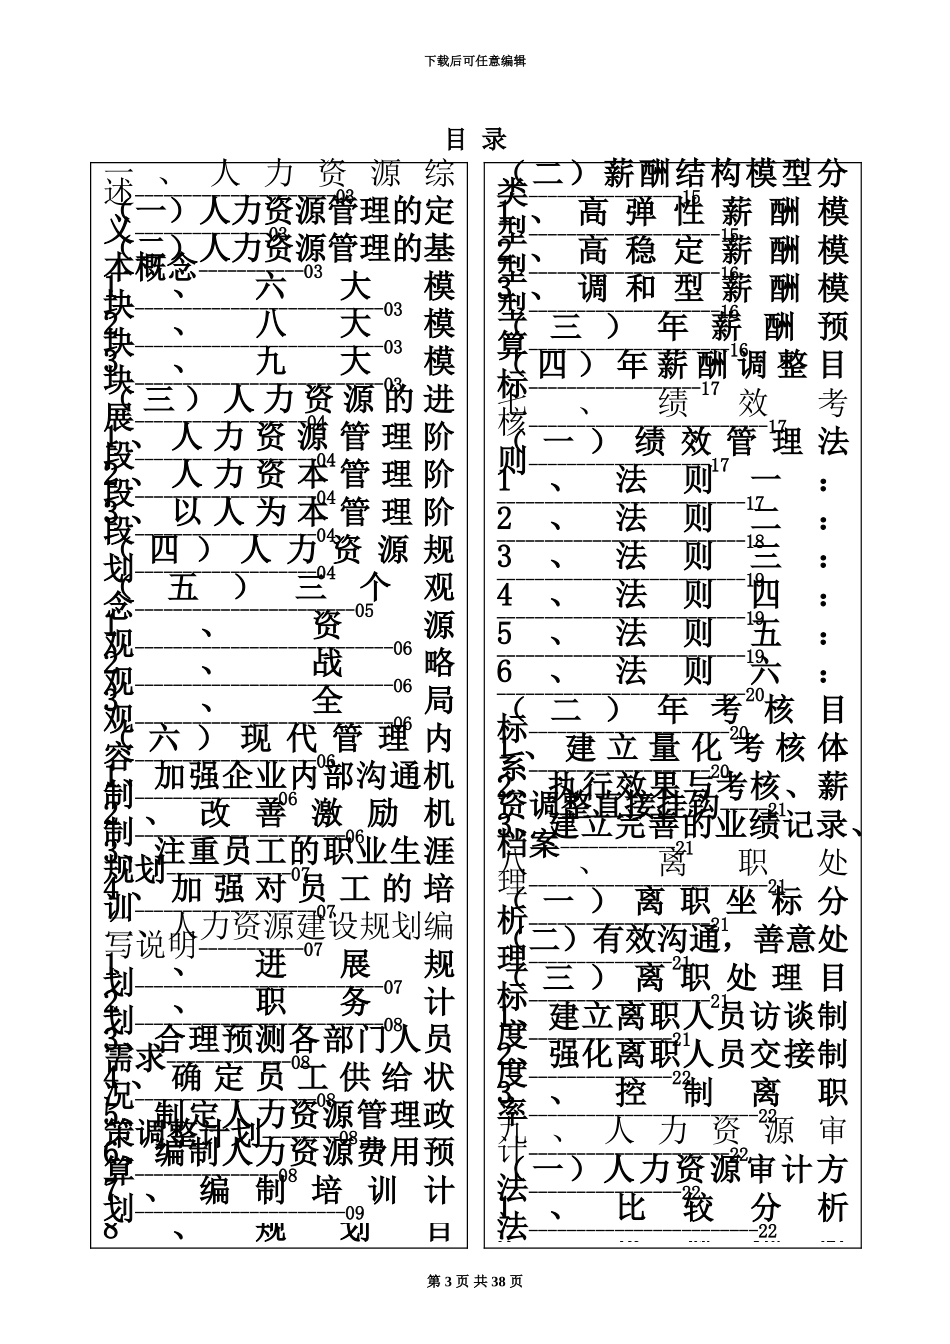 下载后可任意编辑
目 录
一、人力资源综
述------------------------03
（一）人力资源管理的定
义----------------03
（二）人力资源管理的基
本概念------------03
1、六大模
块----------------------------03
2、八大模
块----------------------------03
3、九大模
块----------------------------03
（三）人力资源的进
展--------------------04
1、人力资源管理阶
段--------------------04
2、人力资本管理阶
段--------------------04
3、以人为本管理阶
段--------------------04
（四）人力资源规
划--------------------04
（五）三个观
念------------------------05
1、资源
观----------------------------06
2、战略
观----------------------------06
3、全局
观----------------------------06
（六）现代管理内
容--------------------06
1、加强企业内部沟通机
制----------------06
2、改善激励机
制------------------------06
3、注重员工的职业生涯
规划--------------07
4、加强对员工的培
训--------------------07
二、人力资源建设规划编
写说明------------07
1、进展规
划----------------------------07
2、职务计
划----------------------------08
3、合理预测各部门人员
需求--------------08
4、确定员工供给状
况--------------------08
5、制定人力资源管理政
策调整计划--------08
6、编制人力资源费用预
算----------------08
7、编制培训计
划------------------------09
8、规划目
（二）薪酬结构模型分
类------------------15
1、高弹性薪酬模
型----------------------15
2、高稳定薪酬模
型----------------------16
3、调和型薪酬模
型----------------------16
（三）年薪酬预
算----------------------16
（四）年薪酬调整目
标------------------17
七、绩效考
核--------------------------17
（一）绩效管理法
则--------------------17
1、法则一：
--------------------------17
2、法则二：
--------------------------18
3、法则三：
--------------------------19
4、法则四：
--------------------------19
5、法则五：
--------------------------19
6、法则六：
--------------------------20
（二）年考核目
标----------------------20
1、建立量化考核体
系--------------------20
2、执行效果与考核、薪
资调整直接挂钩----21
3、建立完善的业绩记录、
档案------------21
八、离职处
理--------------------------21
（一）离职坐标分
析--------------------21
（二）有效沟通，善意处
理--------------21
（三）离职处理目
标--------------------21
1、建立离职人员访谈制
度----------------21
2、强化离职人员交接制
度----------------22
3、控制离职
率--------------------------22
九、人力资源审
计----------------------22
（一）人力资源审计方
法----------------22
1、比较分析
法--------------------------22
第 3 页 共 38 页